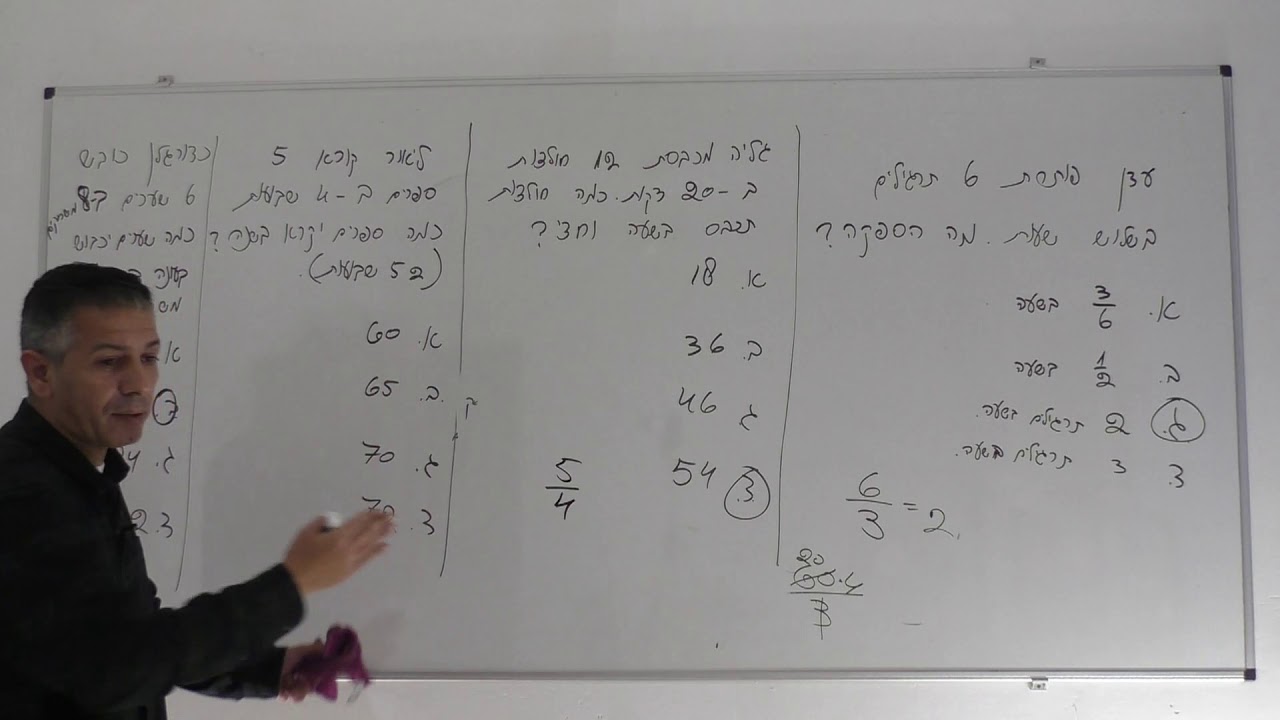 עדן פותרת 6 תרגילים
בשלוש שעות. מה הספקה?
א. 3/6 בשעה
ב. 1/2 בשעה
ג. 2 תרגילים בשעה.
ד. 3 תרגילים בשעה.
6/3 = 2
60·4
20
3
גליה מכבסת 12 חולצות
ב-20 דקות. כמה חולצות
תכבס בשעה וחצי?
א. 18
ב. 36
ג 46
ד. 54
5/4
ליאור קורא 5
ספרים ב-4 שבועות
כמה ספרים יקרא בשנה?
(52 שבועות).
א. 60
ב. 65
ג. 70
ד.
כדורגלן כובש
6 שערים ב-8 משחקים
כמה שערים יכבוש
בעונה
א
ג.
ד.